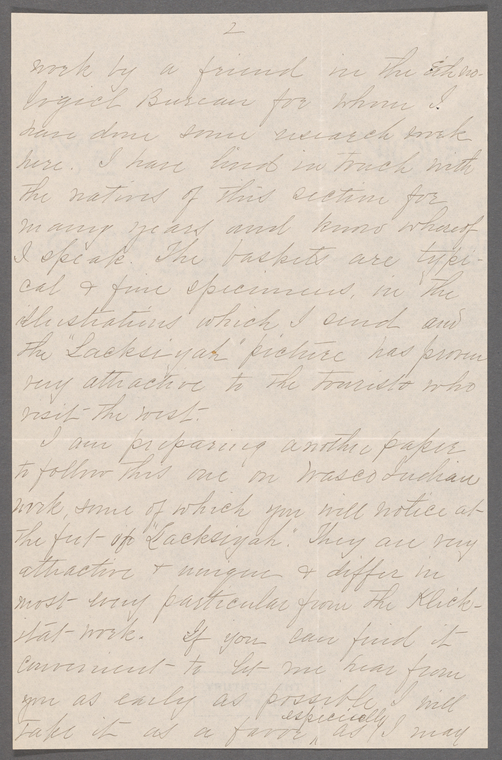 2
work by a friend in the Ethno-
logicl Bureau for whom I
have done some research work
here. I have lived in touch with
the natives of this section for
many years and know whereof
I speak. The baskets are typi-
cal & fine specimens, in the
illustrations which I send and
the "Lacksiyah" picture has proven
very attractive to the tourists who
visit the west.
I am preparing another paper
to follow this one on Wasco Indian
work, some of which you will notice at
the feet of "Lacksiyah". They are very
attractive & unique & differ in
most every particular from the Klick-
itat work. If you can find it
convenient to let me hear from
you as early as possible I will
take it as a favor, especially as I may